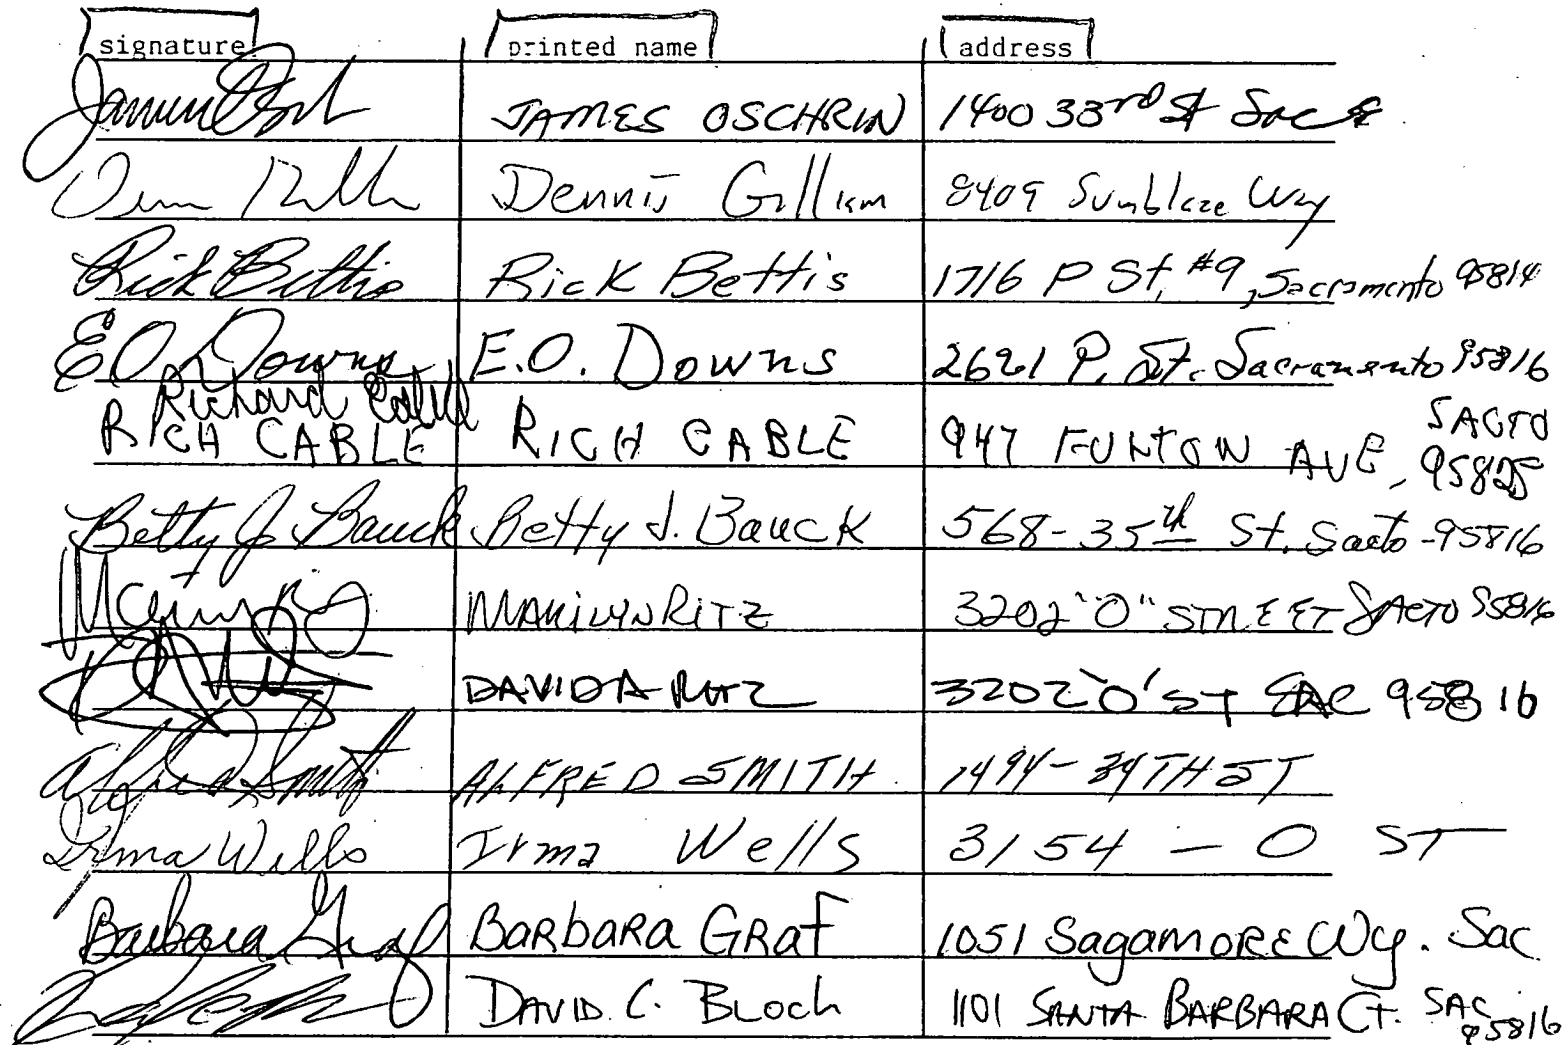 signature printed name address
JAMES OSCHRIN 1400 33rd St Sac
Dennis Gilliam 8409 Sunblaze Way
Rick Bettis Rick Bettis 1716 P St, #9, Sacramento 95814
E.O. Downs E.O. Downs 2621 P. St. Sacramento 95816
Richard Cable
RICH CABLE RICH CABLE 947 FUNTON AVE, SACTO 95825
Betty J. Bauck Betty J. Bauck 568-35th St. Sacto-95816
MARILYN RITZ 3202 "O" STREET SACTO 95816
DAVID A RITZ 3202 'O' ST SAC 95816
Alfred Smith ALFRED SMITH 1494-34TH ST
Irma Wells Irma Wells 3154 - O ST
Barbara Graf BARBARA GRAF 1051 SAGAMORE Wy. Sac.
DAVID C. BLOCH 1101 SANTA BARBARA CT. SAC 95816